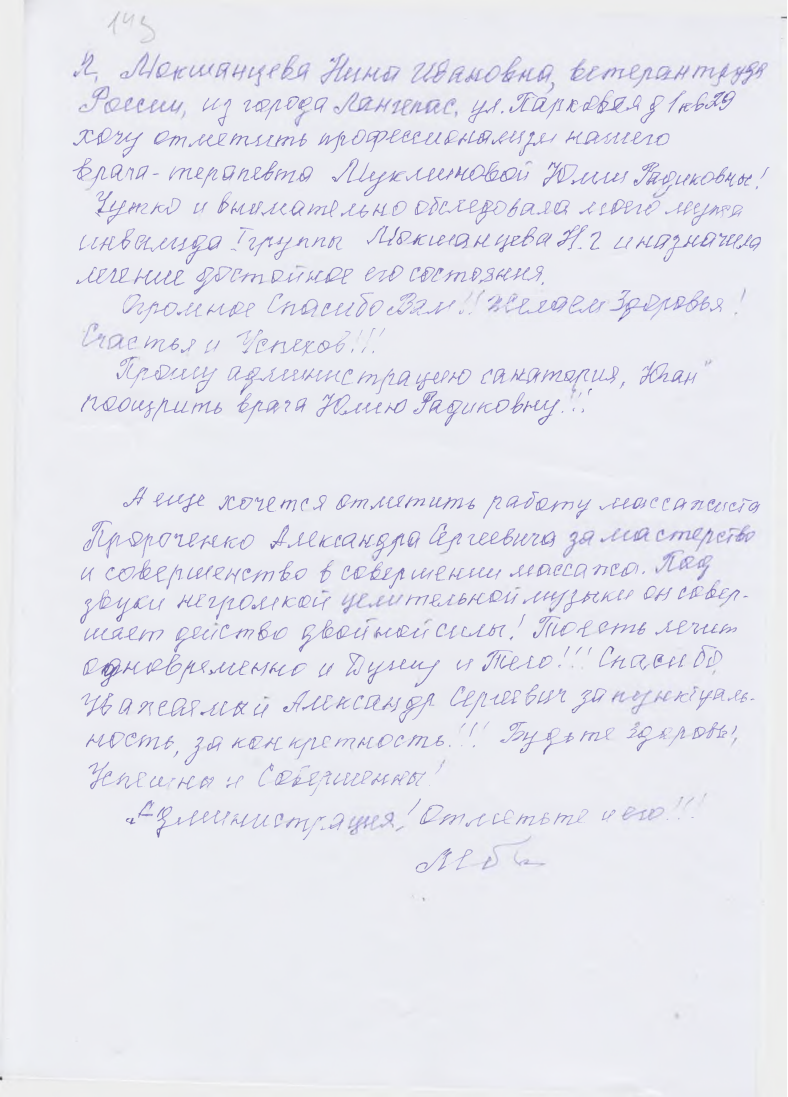 143
Я, Мокшанцева Нина Ивановна, ветеран труда
России, из города Лангепас, ул. Парковая д 1 кв 29
хочу отметить профессионализм нашего
врача-терапевта Муклиновой Юлии Радиковны!
Чутко и внимательно обследовала моего мужа
инвалида I группы Мокшанцева Н.г и назначила
лечение достойное его состояния.
Огромное Спасибо Вам!! Желаем Здоровья!
Счастья и Успехов!!!
Прошу администрацию санатория, Юган"
поощрить врача Юлию Радиковну!!!
А еще хочется отметить работу массажиста
Пророченко Александра Сергеевича за мастерство
и совершенство в совершении массажа. Под
звуки негромкой целительной музыки он совер-
шает действо двойной силы! То есть лечит
одновременно и Душу и Тело!!! Спасибо,
Уважаемый Александр Сергеевич за пунктуаль-
ность, за конкретность!!! Будьте Здоровы,
Успешны и Совершенны!
Администрация! Отметьте и его!!!